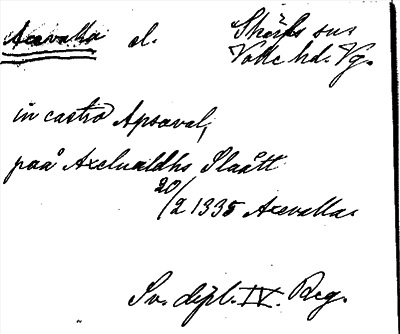 Axevalla el. Skärfs sn
Valle hd. Vg.
in castro Apsaval,
paa Axelualdhs Slaatt
20/2 1335 Axevalla
Sv. dipl. IV. Reg.